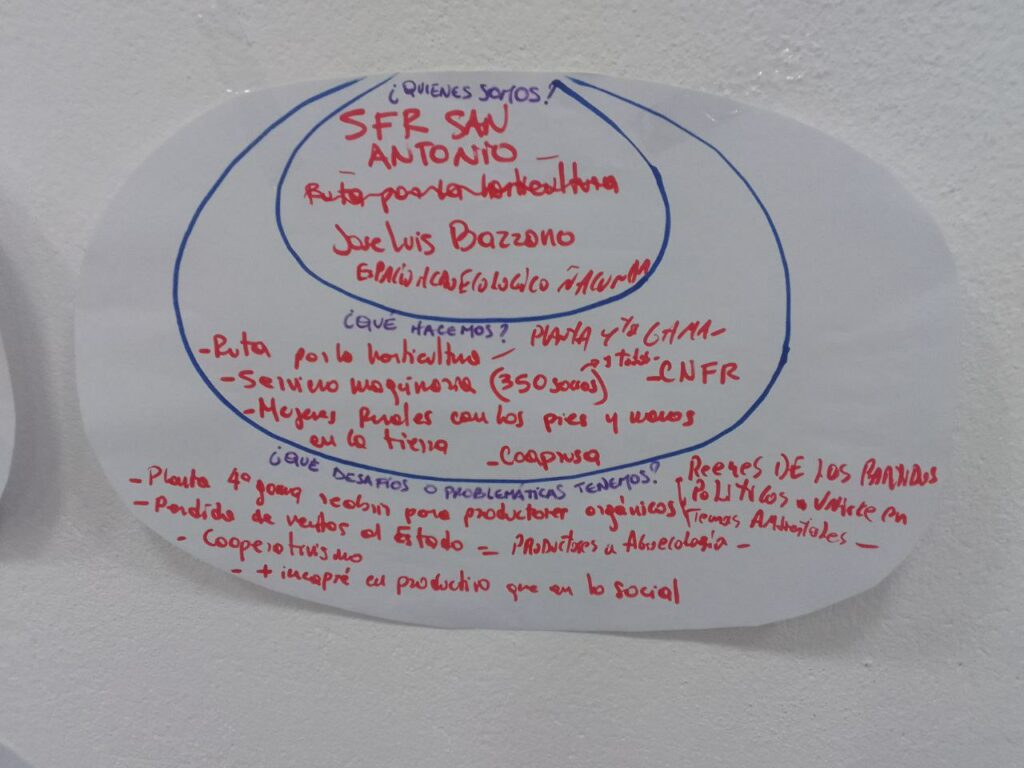 ¿QUIENES SOMOS?
SFR SAN
ANTONIO -
Ruta por la horticultura
Jose Luis Bazzono
ESPACIO AGROECOLOGICO ÑACUNDA
¿QUÉ HACEMOS?
PLANTA 4ta GAMA -
- Ruta por la horticultura -
- Servicio maquinaria (350 socios)
- CNFR
- Mujeres Rurales con los pies y manos
en la tierra
- Coaprosa
¿QUE DESAFÍOS O PROBLEMÁTICAS TENEMOS?
- Planta 4º gama reabrir para productores orgánicos
DE LOS PARTIDOS
POLITICOS
- Perdida de ventas al Estado = PRODUCTORES a Agroecología -
- Cooperativismo
- + incapré en productivo que en lo social